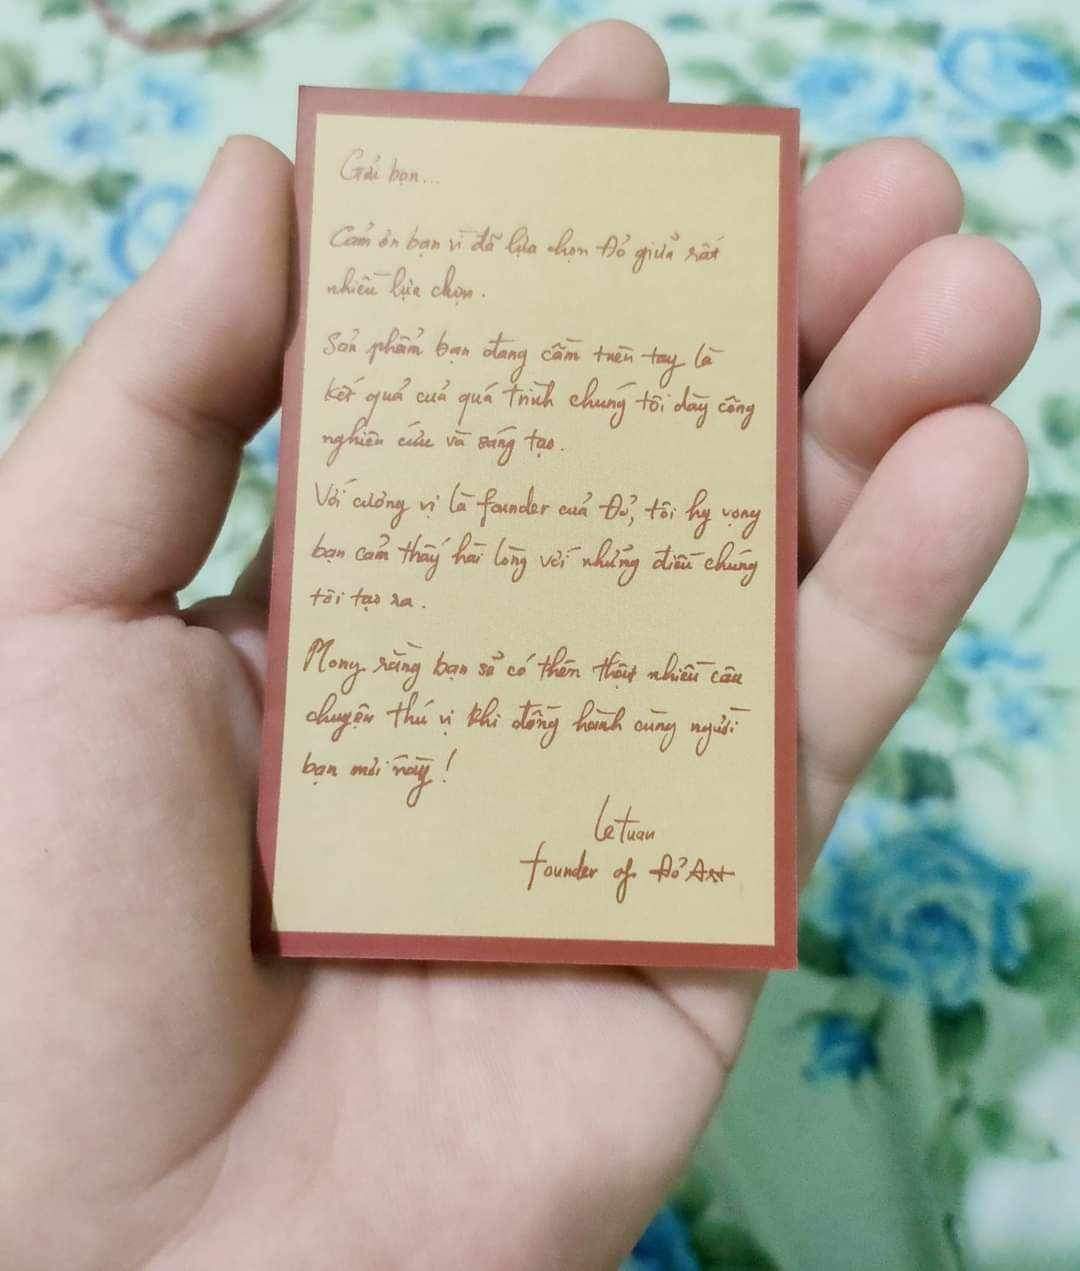 Gửi bạn...
Cảm ơn bạn vì đã lựa chọn Đỏ giữa rất
nhiều lựa chọn.
Sản phẩm bạn đang cầm trên tay là
kết quả của quá trình chúng tôi dày công
nghiên cứu và sáng tạo.
Với cương vị là founder của Đỏ, tôi hy vọng
bạn cảm thấy hài lòng với những điều chúng
tôi tạo ra.
Mong rằng bạn sẽ có thêm thật nhiều câu
chuyện thú vị khi đồng hành cùng người
bạn mới này!
Le Tuan
founder of Đỏ Art